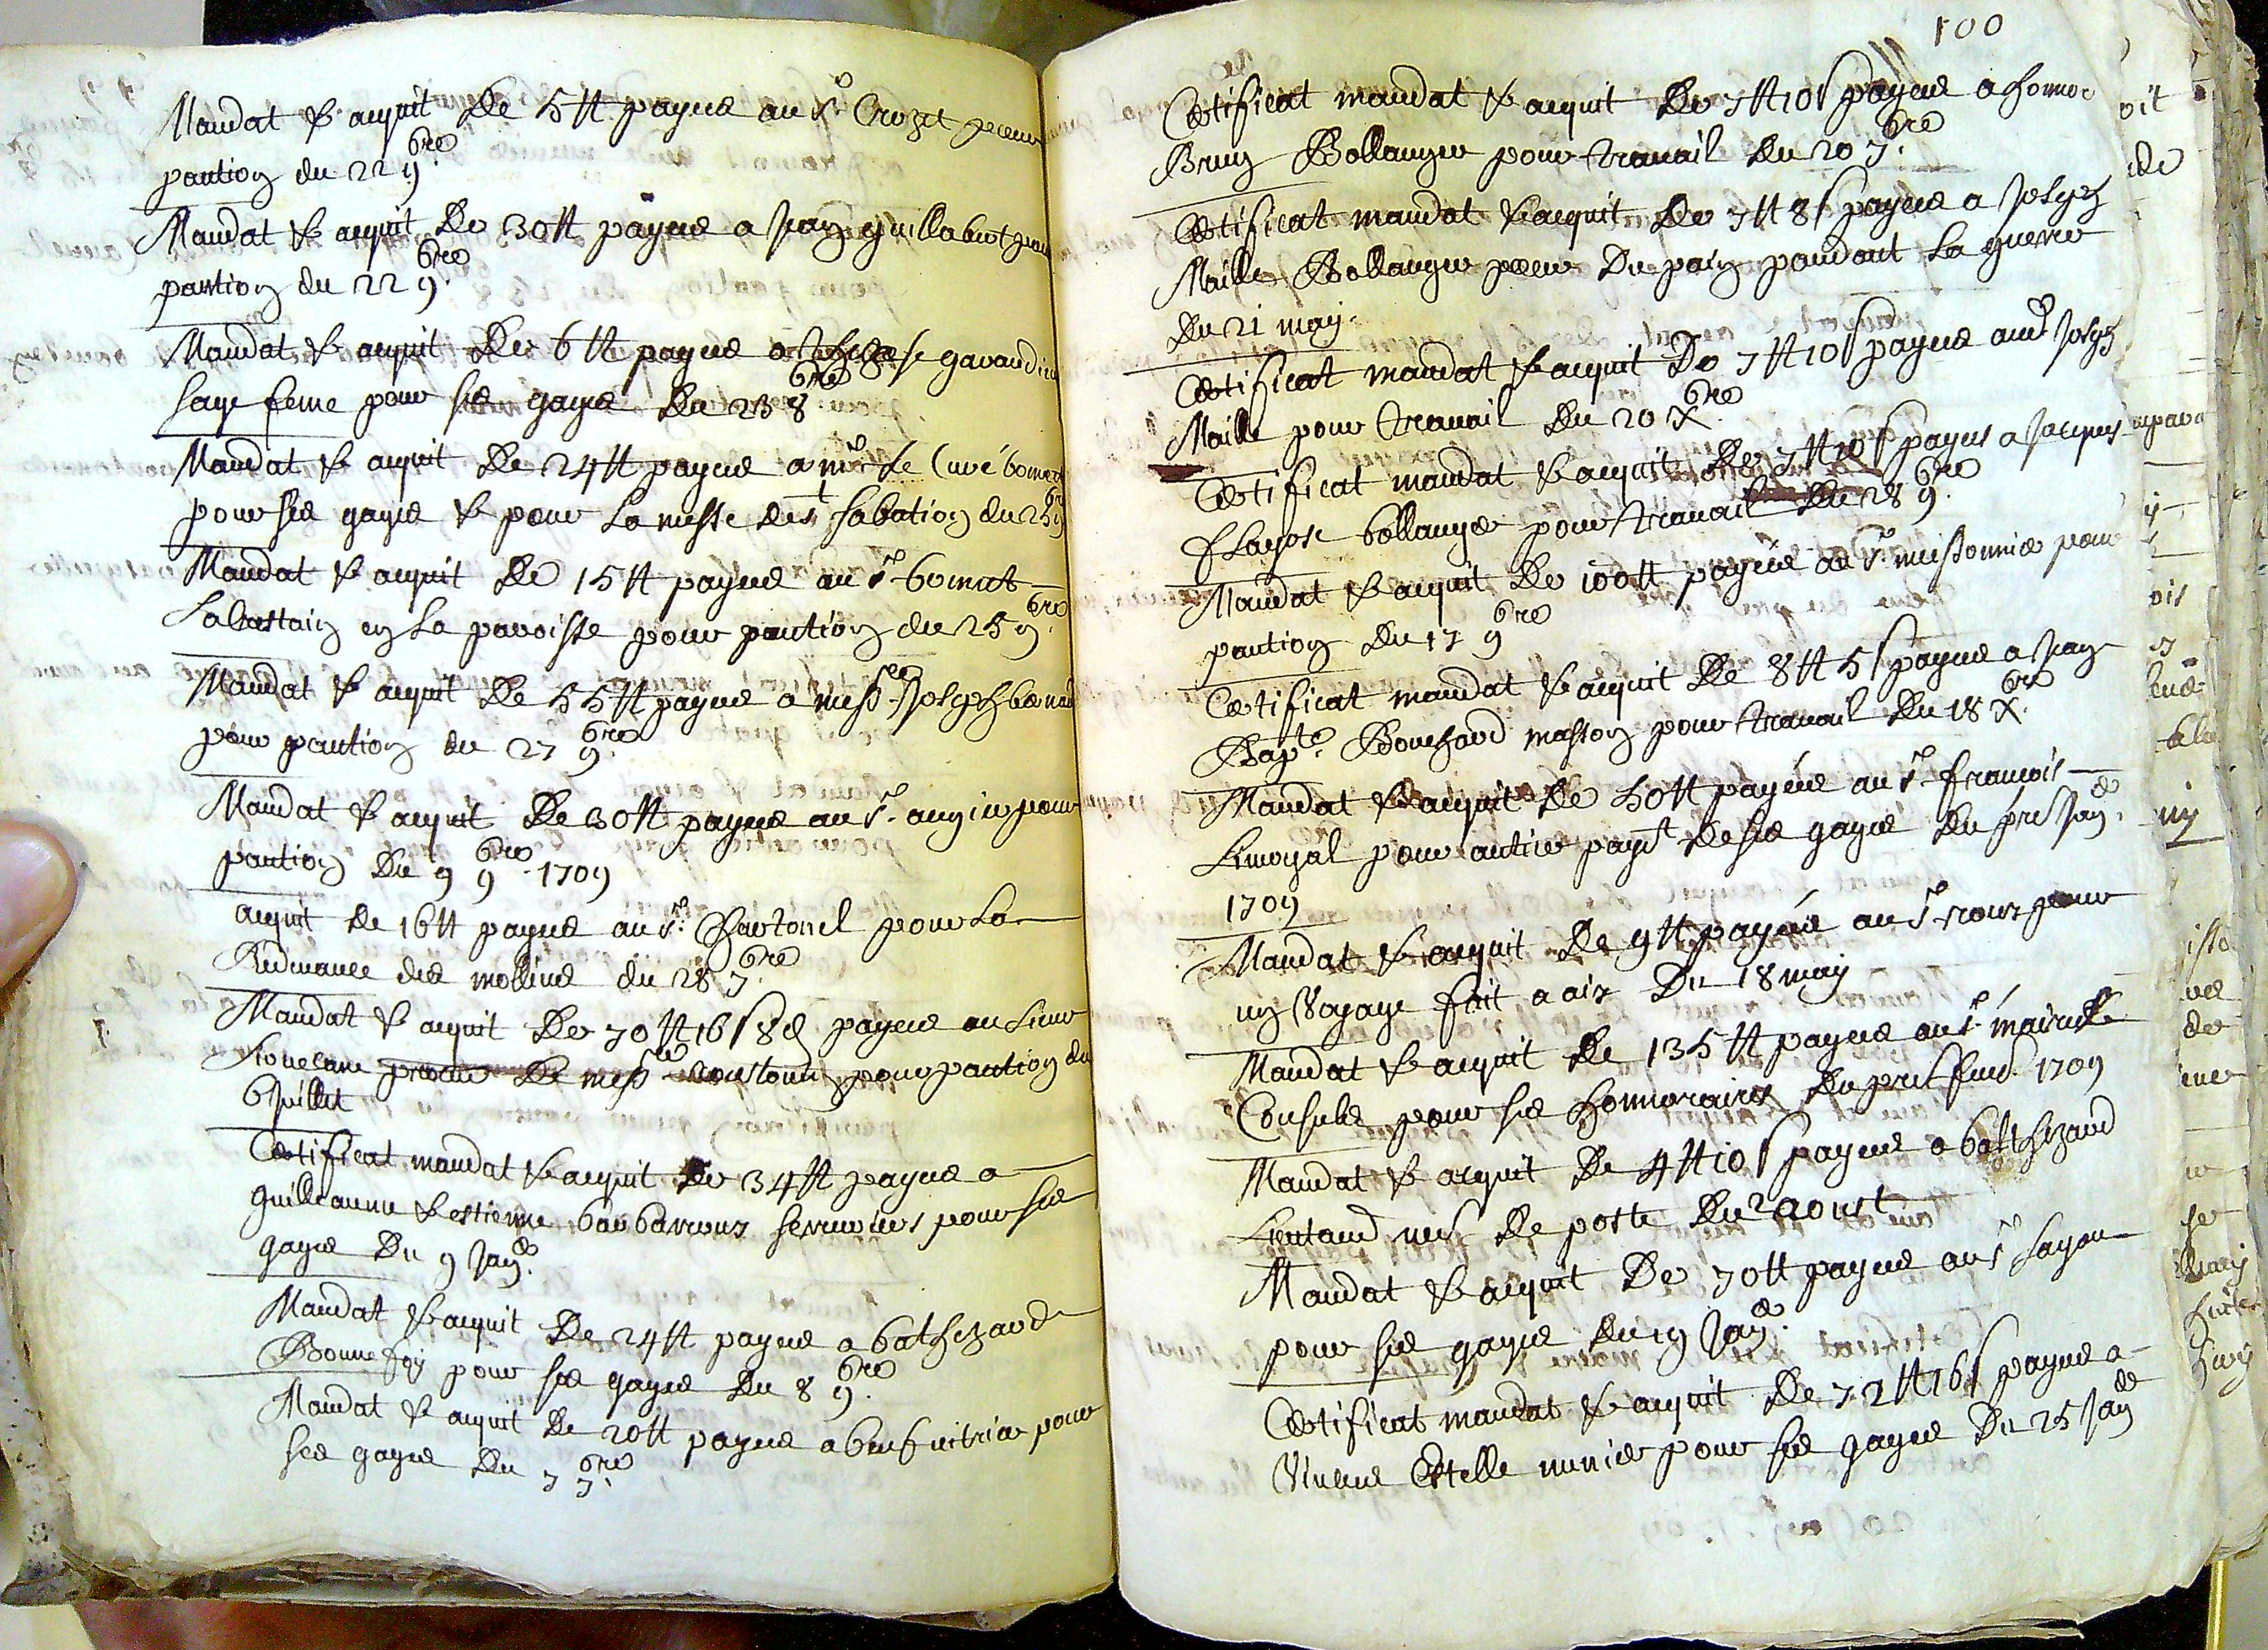 Mandat & aquit de 5 tt payes au Sr Crozet pour
pantion du 22 9bre
Mandat & aquit de 30 tt payes a Jean guillabert pour
pantion du 22 9bre
Mandat & aquit de 6 tt payes a se gavaudin
sage feme pour ses gages du 23 8bre
Mandat & aquit de 24 tt payes a mre le Curé
pour ses gages & pour la messe de st sabation du 25 9bre
Mandat & aquit de 15 tt payes au Sr
en la paroisse pour pantion du 25 9bre
Mandat & aquit de 55 tt payes a messre Joseph
pour pantion du 27 9bre
Mandat & aquit de 30 tt payes au Sr augier pour
pantion du 9 9bre 1709
aquit de 16 tt payes au Sr pour la
Redevance des mollins du 28 7bre
Mandat & aquit de 70 tt 16 s 8 d payes au sieur
de messre pour pantion du
6 Juillet
Certificat mandat & aquit de 34 tt payes a
guilleaume & estienne barbarroux serruriers pour ses
gages du 9 Janer
Mandat & aquit de 24 tt payes a bathezard
Bonnefoy pour ses gages du 8 9bre
Mandat & aquit de 20 tt payes a pour
ses gages du 7 7bre
100
Certificat mandat & aquit de 7 tt 10 s payes a honoré
Brun Bollanger pour travail du 20 7bre
Certificat mandat & aquit de 7 tt 8 s payes a Joseph
Maille Bollanger pour du pain pandant la guerre
du 21 may
Certificat mandat & aquit de 7 tt 10 s payes aud Joseph
Maille pour travail du 20 Xbre
Certificat mandat & aquit de 7 tt 10 s payes a Jacques
flayose bollanger pour travail du 28 9bre
Mandat & aquit de 100 tt payées au Sr missonnier pour
pantion du 17 9bre
Certificat mandat & aquit de 8 tt 5 s payes a Jean
Bapte Bouchard masson pour travail du 18 Xbre
Mandat & aquit de 50 tt payées au Sr francois
Limoyal pour antier payt de ses gages du pre Janer
1709
Mandat & aquit de 9 tt payées au Sr roux pour
un Voyage fait a aix du 18 may
Mandat & aquit de 135 tt payes aux Srs maire &
Consuls pour ses honnoraires du 1709
Mandat & aquit de 4 tt 10 s payes a balthezard
Lieutaud mes de poste du 2 aoust
Mandat & aquit de 70 tt payes au Sr
pour ses gages du 19 Janer
Certificat mandat & aquit de 72 tt 16 s payes a
Vincens Estelle pour ses gages du 25 Janer